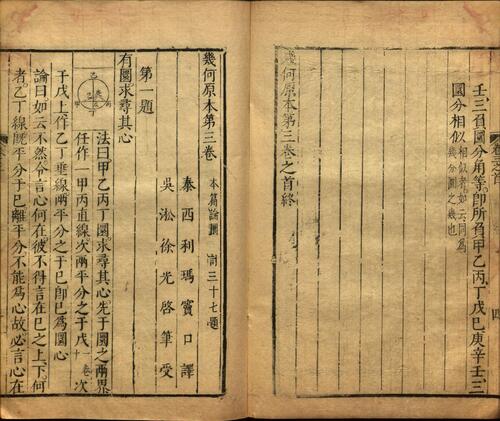 壬三負圜分角等卽所負甲乙丙丁戊己庚辛壬三
圜分相似相似者如云同爲
幾分圜之幾也
幾何原本第三卷之首終
幾何原本第三卷 本篇論圜 計三十七題
泰西利瑪竇口譯
吳淞徐光啓筆受
第一題
有圜求尋其心
法曰甲乙丙丁圜求尋其心先于圜之兩界
任作一甲丙直線次兩平分之于戊一卷十次
于戊上作乙丁垂線兩平分之于己卽己爲圜心
論曰如云不然令言心何在彼不得言在己之上下何
者乙丁線旣平分于己離平分不能爲心故必言心在